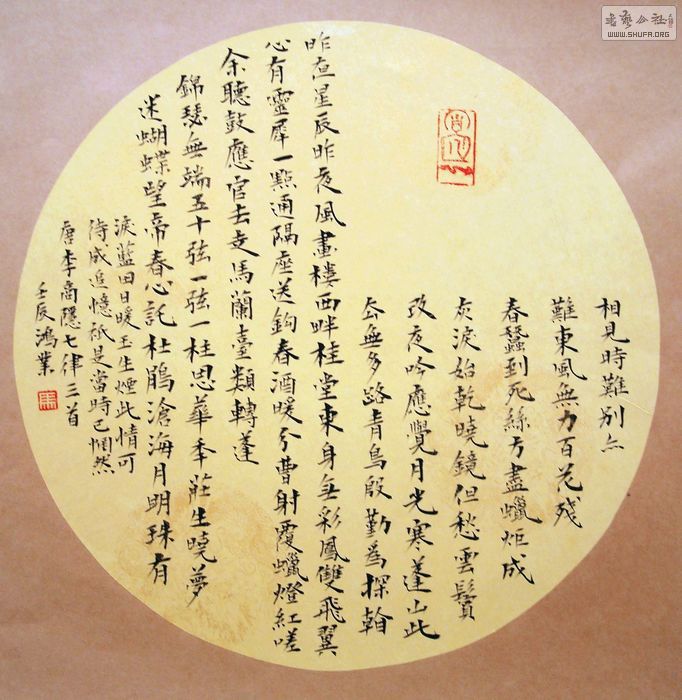 相見時難別亦
難東風無力百花殘
春蠶到死絲方盡蠟炬成
灰淚始乾曉鏡但愁雲鬢
改夜吟應覺月光寒蓬山此
去無多路青鳥殷勤為探翰
昨夜星辰昨夜風畫樓西畔桂堂東身無彩鳳雙飛翼
心有靈犀一點通隔座送鈎春酒暖分曹射覆蠟燈紅嗟
余聽鼓應官去走馬蘭臺類轉蓬
錦瑟無端五十弦一弦一柱思華年莊生曉夢
迷蝴蝶望帝春心託杜鵑滄海月明珠有
淚藍田日暖玉生煙此情可
待成追憶祇是當時已惘然
唐李商隱七律三首
壬辰鴻業
書藝公社
WWW.SHUFA.ORG